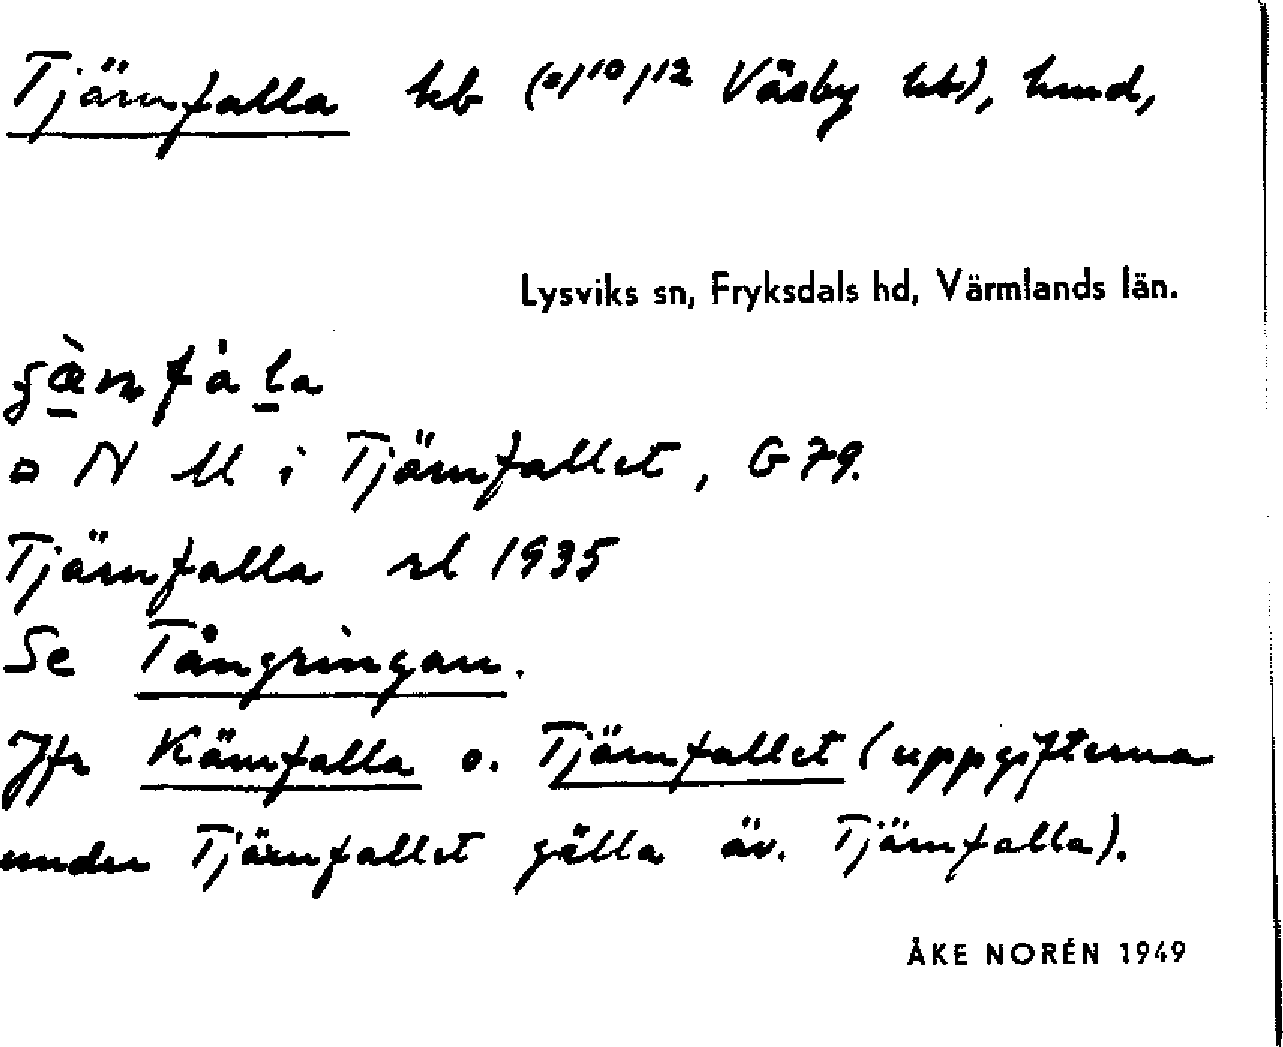 Tjärnfalla hb (o/10/12 Väsby hb), hmd,
Lysviks sn, Fryksdals hd, Värmlands län.
N ll i Tjärnfallet, G 79.
Tjärnfalla rl 1935
Se Tångringan.
Jfr Kärnfalla o. Tjärnfallet (uppgifterna
under Tjärnfallet gälla äv. Tjärnfalla).
ÅKE NORÉN 1949